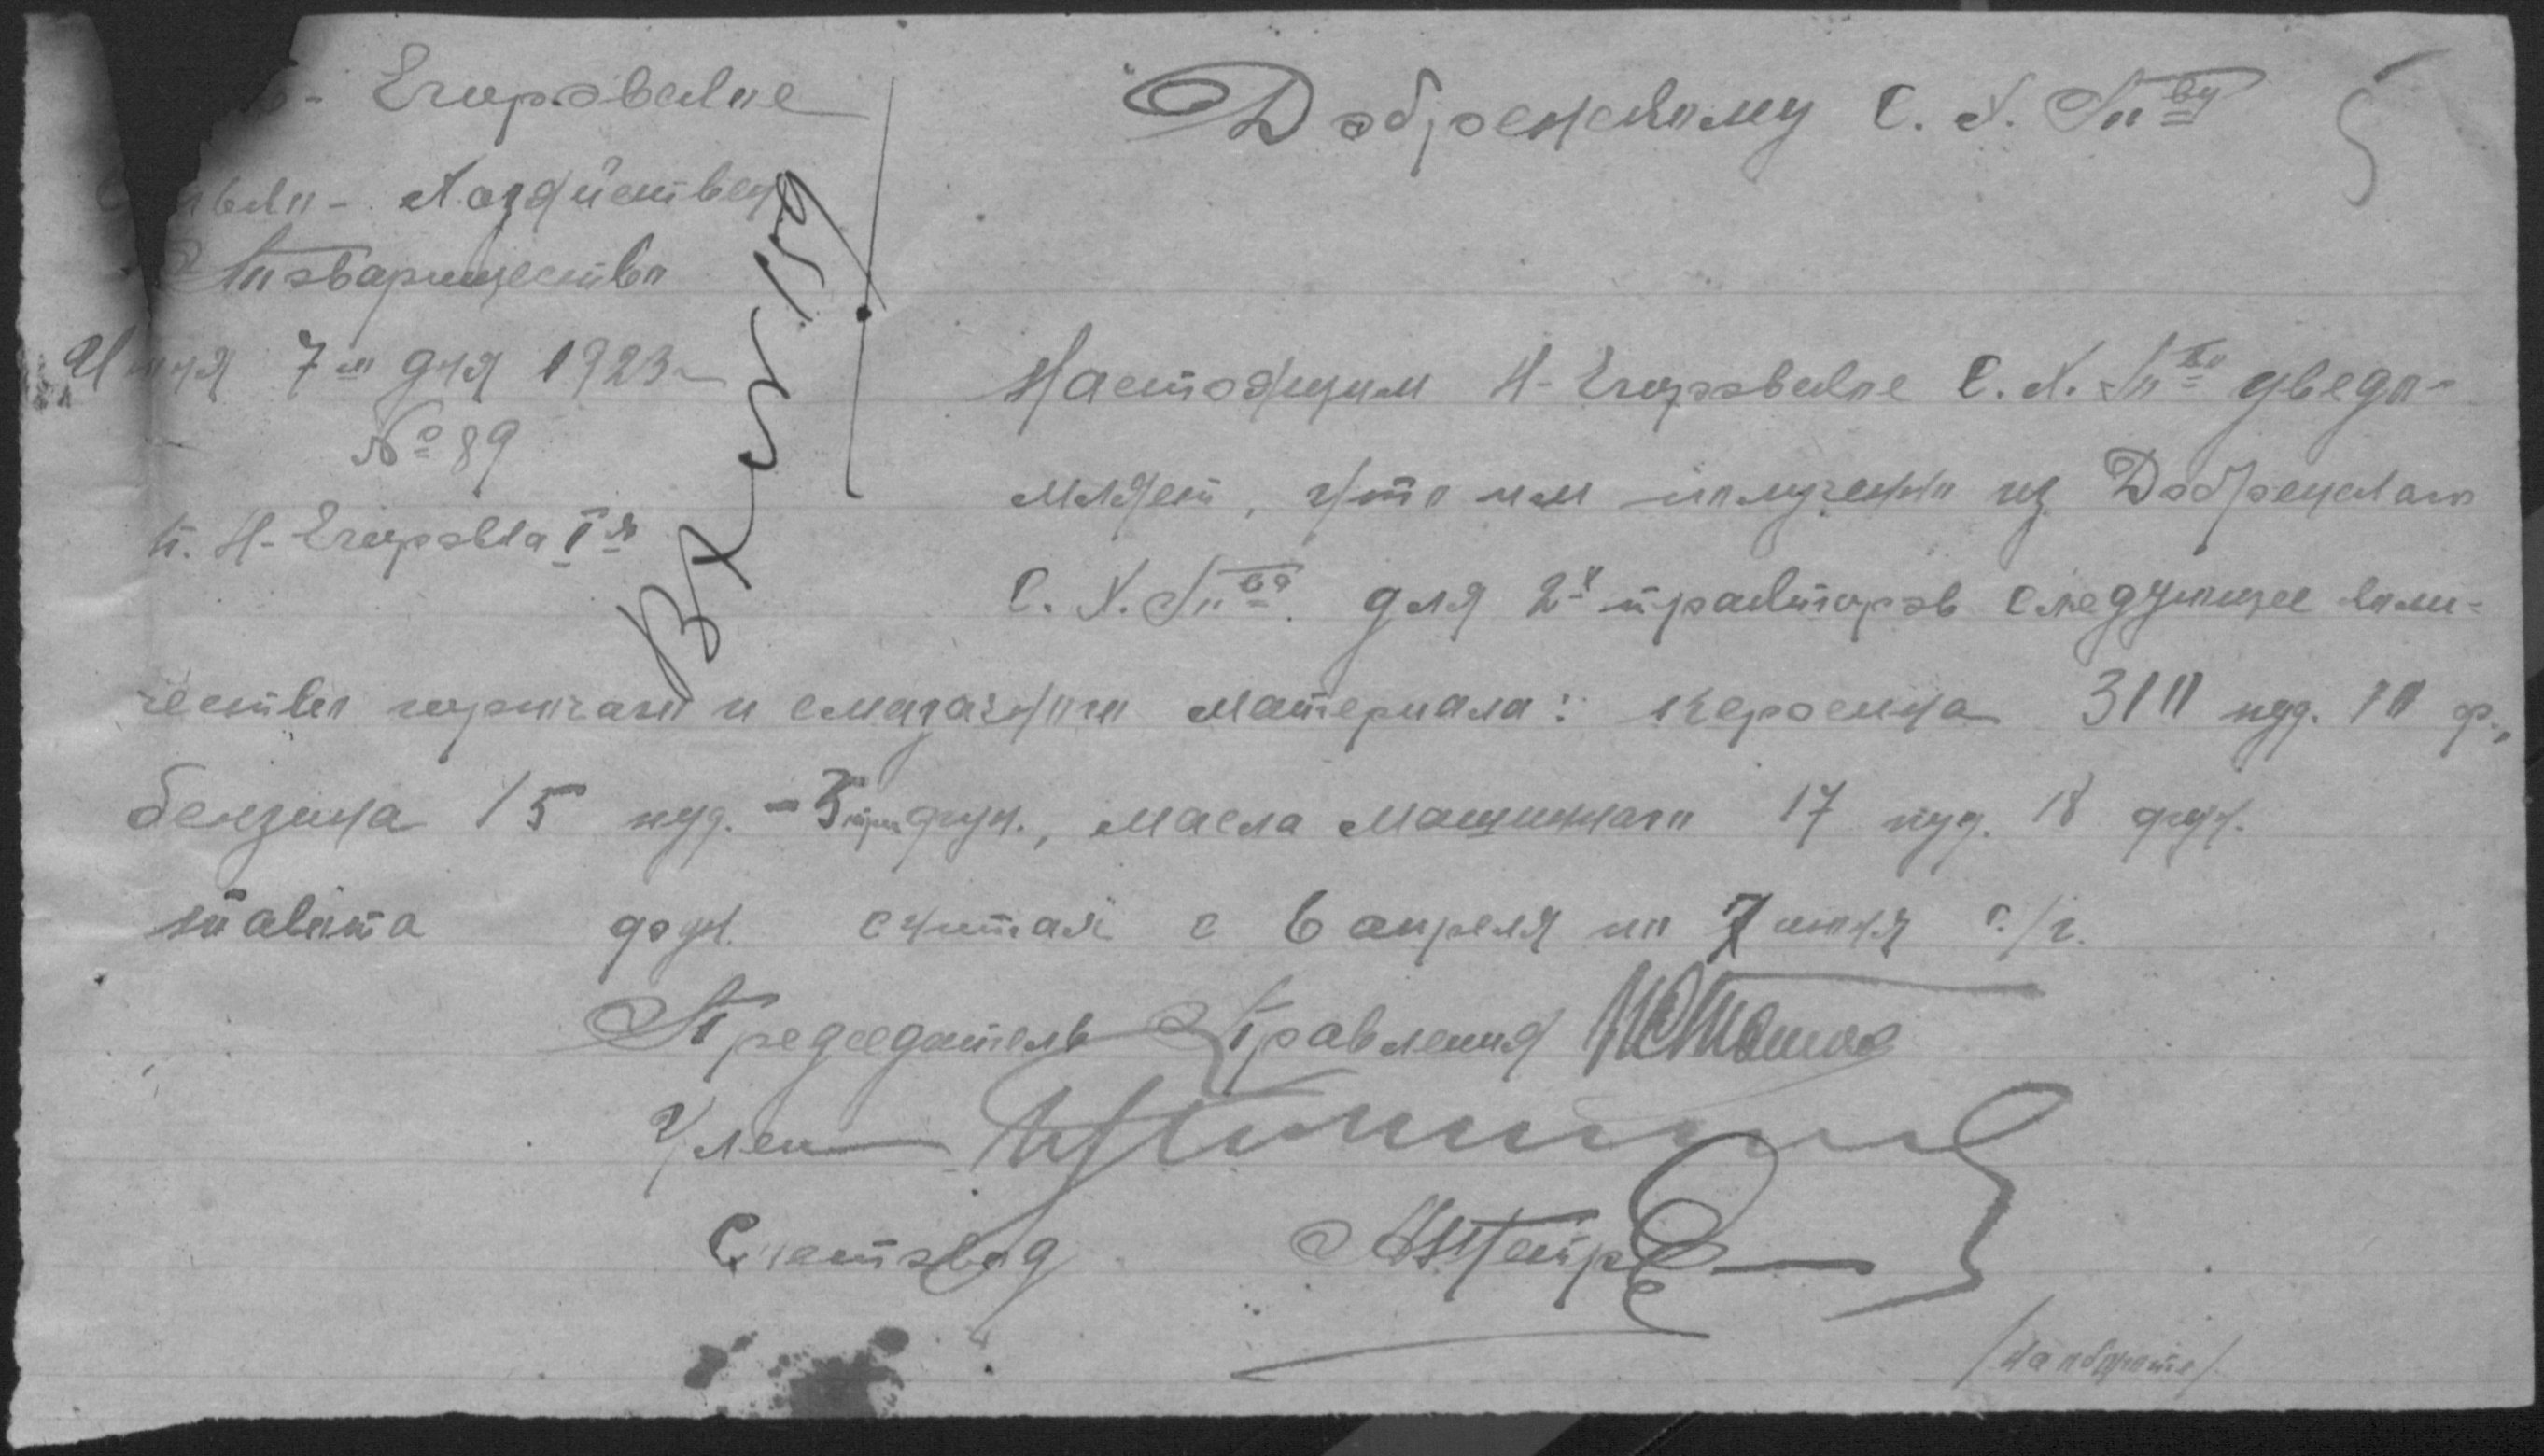 Егоровское
Хозяйствен
Товарищество
Июня 7го дня 1923 г
№ 89
п. Н-Егоровка Iя
Вх № 159
Добренскому С. Х. Тву
5
Настоящим Н-Егоровское С. Х. Тво уведо-
мляет, что им получено из Добренскаго
С. Х. Тва. для 2х тракторов следующее коли-
чество горючаго и смазачного материала: керосина 310 пуд. 10 ф.,
бензина 15 пуд. - 3 три фун., масла машиннаго 17 пуд. 18 фун.
тавота фун. считая с 6 апреля по 7 июня с./г.
Председатель Правления
Член
Счетовод
/на обороте/